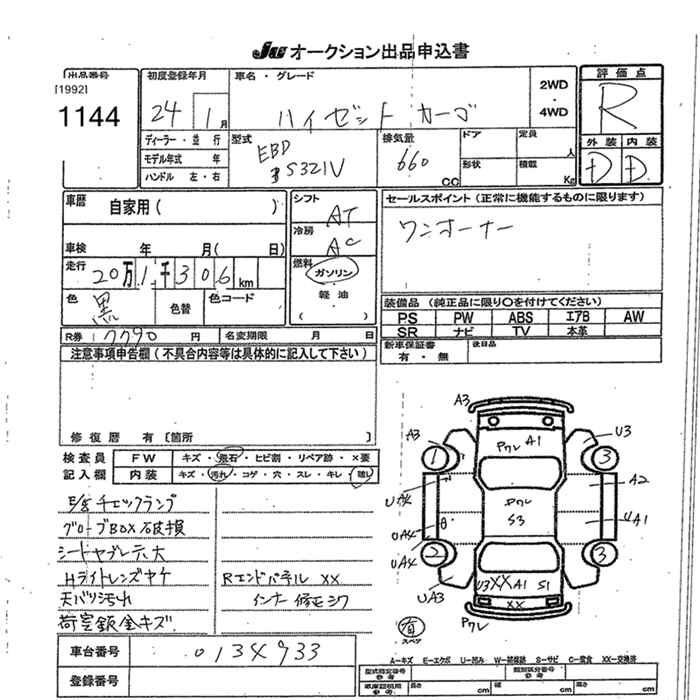 JU オークション出品申込書
出品番号
[1992]
1144
初度登録年月
24 1月
車名・グレード
ハイゼットカーゴ
2WD
・
4WD
評価点
R
外装 内装
D D
ディーラー・並行
モデル年式 年
ハンドル 左・右
型式
EBD
S321V
排気量
660
CC
ドア
定員
人
形状
積載
Kg
車歴
自家用( )
車検 年 月( 日)
走行
20万1千306km
色
黒
色替
色コード
R券 7790 円
名変期限 月 日
シフト
AT
冷房
AC
燃料
ガソリン
軽油
( )
セールスポイント(正常に機能するものに限ります)
ワンオーナー
装備品(純正品に限り○を付けてください)
PS PW ABS エアB AW
SR ナビ TV 本革
新車保証書
有・無
後日品
注意事項申告欄(不具合内容等は具体的に記入して下さい)
修復歴 有〔箇所 〕
検査員
記入欄
FW キズ・飛石・ヒビ割・リペア跡・×要
内装 キズ・汚れ・コゲ・穴・スレ・キレ・
E/gチェックランプ
グローブBOX破損
シートヤブレ穴大
Hライトレンズヤケ
天バリ汚れ
荷室鈑金キズ
Rエンドパネル XX
インナー修正シワ
車台番号 0134933
登録番号
A3
A3
U3
1
3
Pクレ A1
A2
Pクレ
S3
UA1
UA4
UA4
2
3
UA3
U3 XX A1 S1
XX
Pクレ
有
スペア
A－キズ E－エクボ U－凹み W－補修跡 S－サビ C－腐食 XX－交換済
型式指定番号
参考
類別区分番号
参考
長さ cm 幅 cm 高さ cm